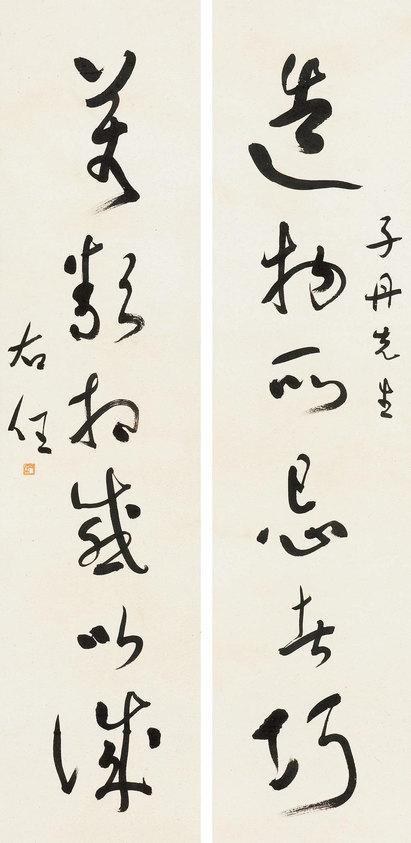 子丹先生
造物所忌者巧
萬類相感以誠
右任